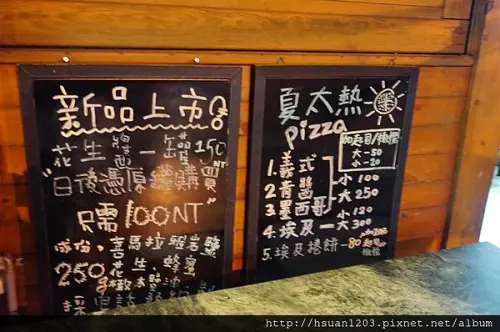 新品上市
花生醬一罐 150 NT
"日後憑原罐購買"
只需 100NT
成份:喜馬拉雅岩鹽
花生,蜂蜜
250g
夏太熱
pizza
加起司/橄欖
大-50
小-20
1.義式
2.青醬
3.墨西哥
小 100
大 250
4.埃及
小 120
大 300
5.埃及捲餅-80
http://hsuan1203.pixnet.net/album